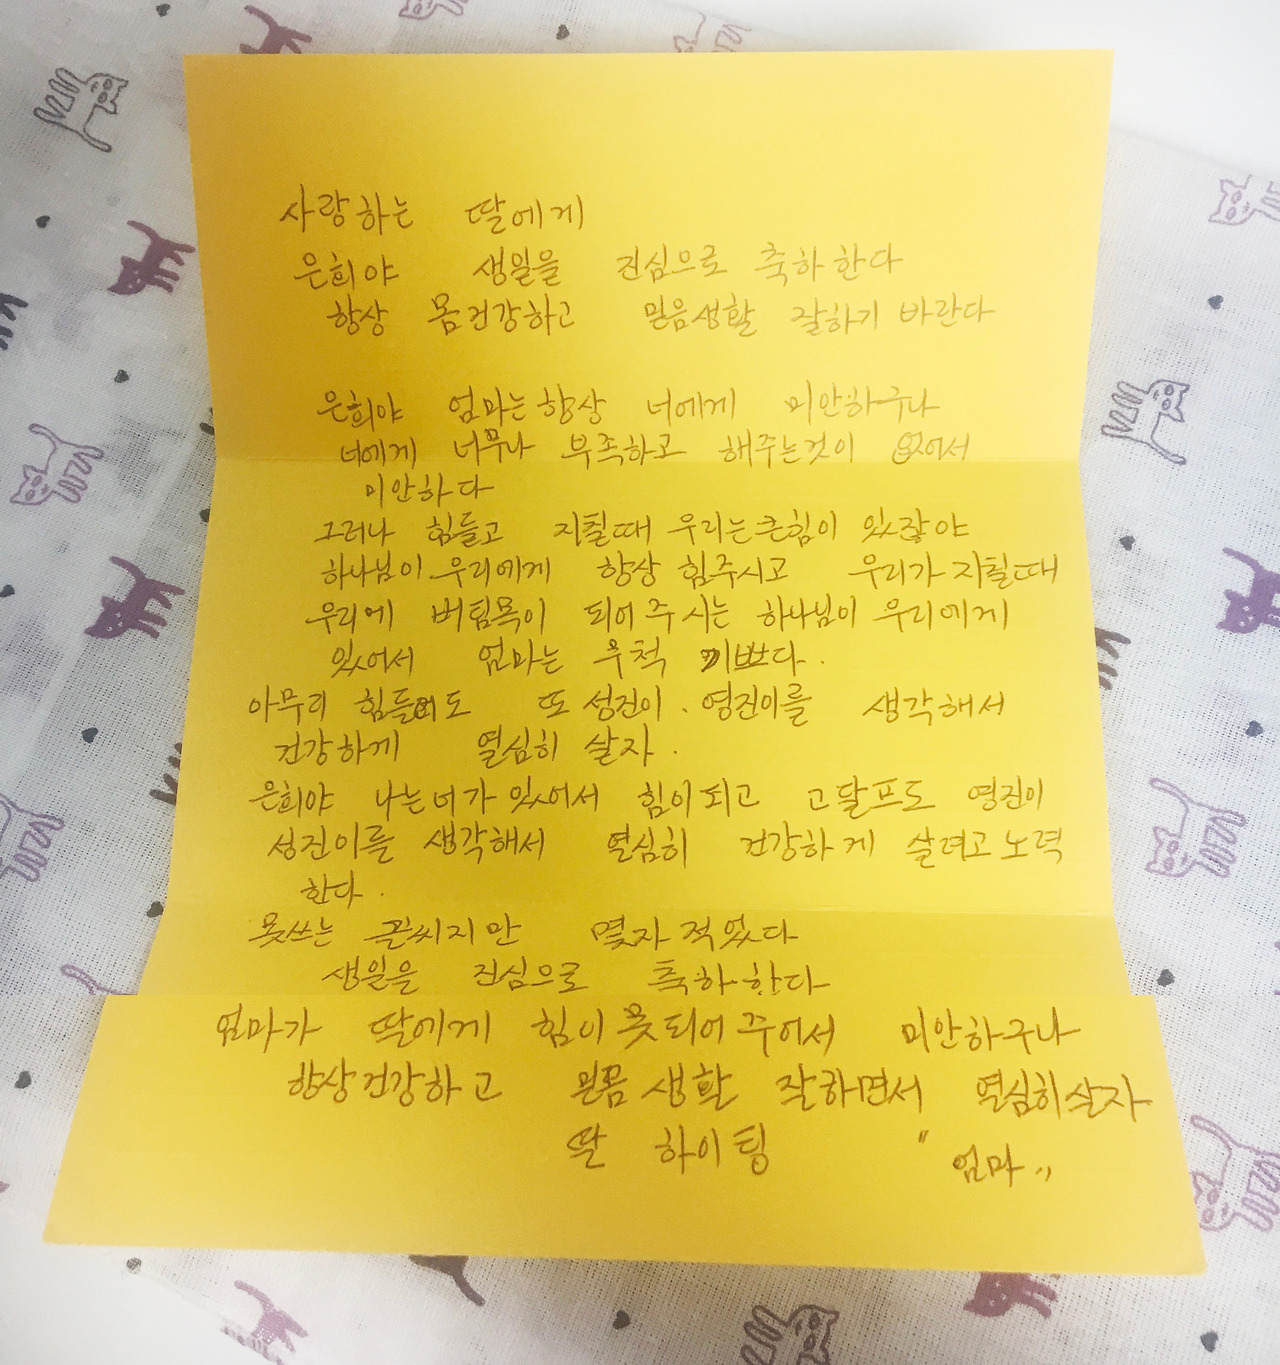 사랑하는 딸에게
은희야 생일을 진심으로 축하 한다
항상 몸건강하고 믿음생활 잘하기 바란다
은희야 엄마는 항상 너에게 미안하구나
너에게 너무나 부족하고 해주는것이 없어서
미안하다
그러나 힘들고 지칠때 우리는 큰힘이 있잖아
하나님이 우리에게 항상 힘주시고 우리가 지칠때
우리에 버팀목이 되어 주시는 하나님이 우리에게
있어서 엄마는 무척 기쁘다.
아무리 힘들어도 또 성진이. 영진이를 생각해서
건강하게 열심히 살자.
은희야 나는 너가 있어서 힘이되고 고달프도 영진이
성진이를 생각해서 열심히 건강하게 살려고 노력
한다.
못쓰는 글씨지만 몇자 적었다
생일을 진심으로 축하한다
엄마가 딸에게 힘이 못되어 주어서 미안하구나
항상 건강하고 믿음 생활 잘하면서 열심히 살자
딸 하이팅 "엄마"